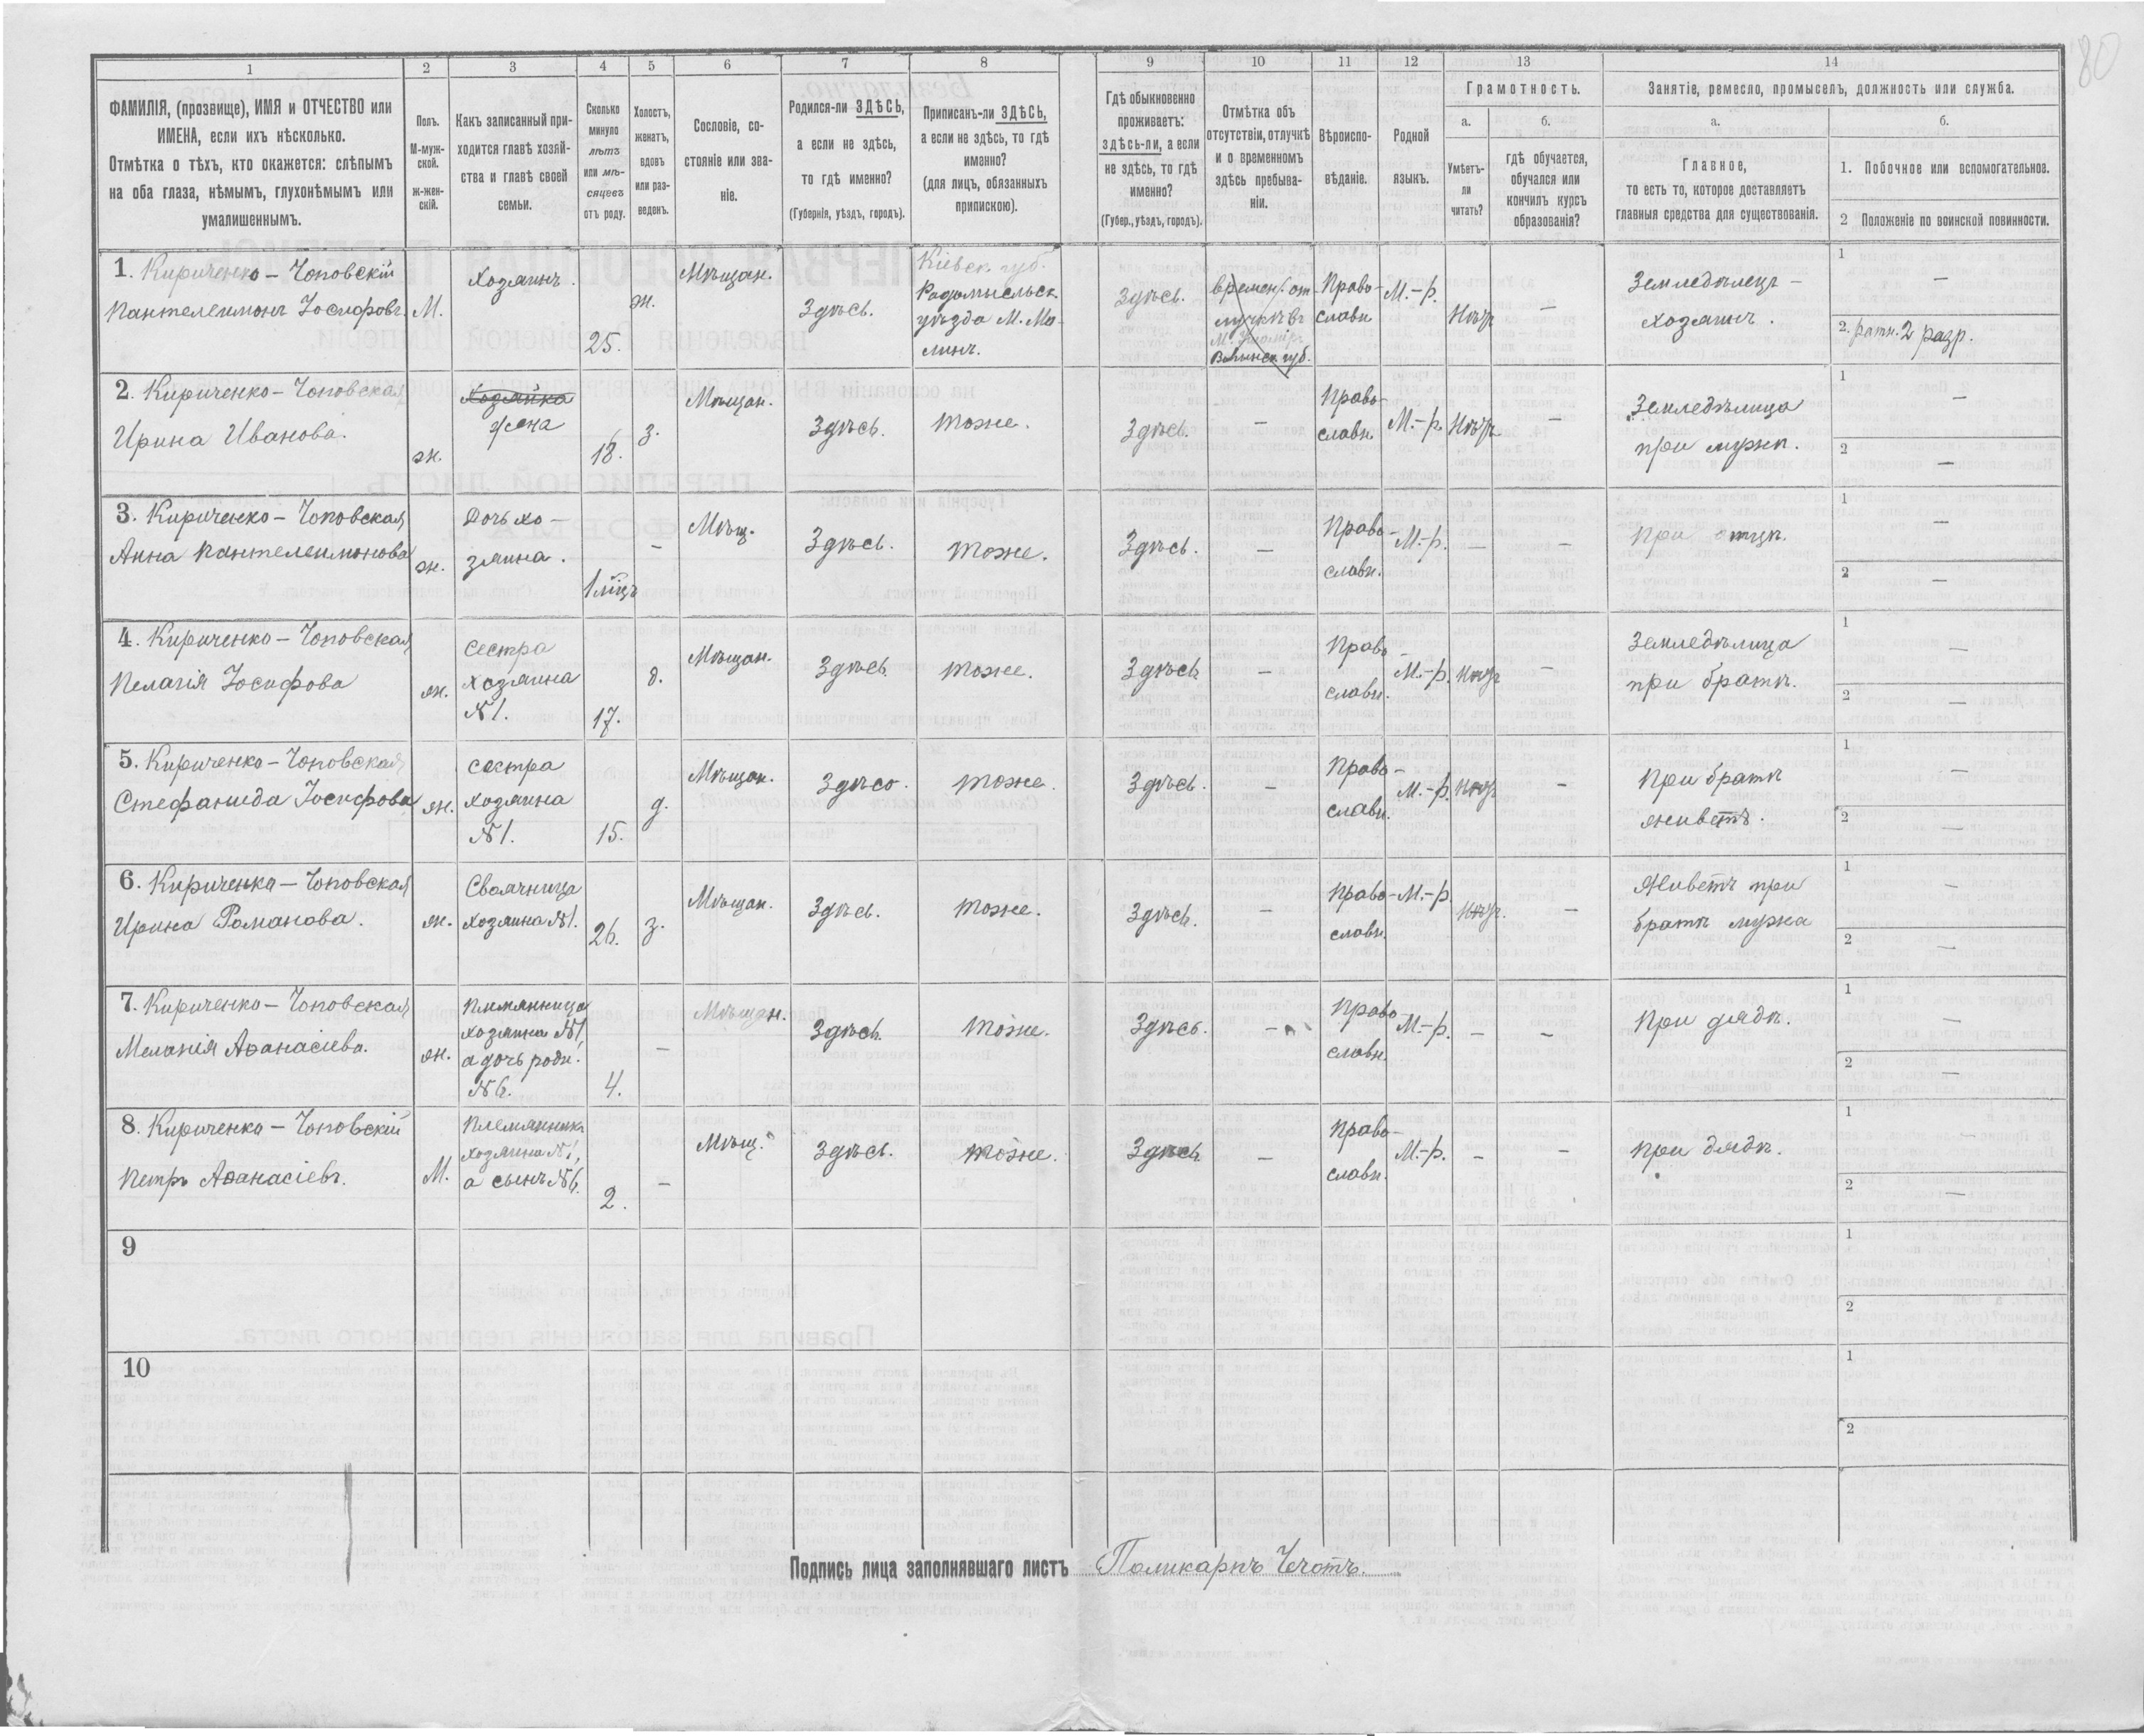 80
1 2 3 4 5 6 7 8 9 10 11 12 13 14
ФАМИЛІЯ, (прозвище), ИМЯ и ОТЧЕСТВО или
ИМЕНА, если ихъ нѣсколько.
Отмѣтка о тѣхъ, кто окажется: слѣпымъ
на оба глаза, нѣмымъ, глухонѣмымъ или
умалишеннымъ.
Полъ.
М-муж-
ской.
ж-жен-
скій.
Какъ записанный при-
ходится главѣ хозяй-
ства и главѣ своей
семьи.
Сколько
минуло
лѣтъ
или мѣ-
сяцевъ
отъ роду.
Холостъ,
женатъ,
вдовъ
или раз-
веденъ.
Сословіе, со-
стояніе или зва-
ніе.
Родился-ли ЗДѢСЬ,
а если не здѣсь,
то гдѣ именно?
(Губернія, уѣздъ, городъ).
Приписанъ-ли ЗДѢСЬ,
а если не здѣсь, то гдѣ
именно?
(для лицъ, обязанныхъ
припискою).
Гдѣ обыкновенно
проживаетъ:
здѣсь-ли, а если
не здѣсь, то гдѣ
именно?
(Губер., уѣздъ, городъ).
Отмѣтка объ
отсутствіи, отлучкѣ
и о временномъ
здѣсь пребыва-
ніи.
Вѣроиспо-
вѣданіе.
Родной
языкъ.
Грамотность.
а.
Умѣетъ-
ли
читать?
б.
гдѣ обучается,
обучался или
кончилъ курсъ
образованія?
Занятіе, ремесло, промыселъ, должность или служба.
а.
Главное,
то есть то, которое доставляетъ
главныя средства для существованія.
б.
1. Побочное или вспомогательное.
2 Положеніе по воинской повинности.
1. Кириченко – Чоповскій
Пантелеимонъ Іосифовъ.
М.
Хозяинъ.
25.
ж.
Мѣщан.
Здѣсь.
Кіевск. губ.
Радомысльск.
уѣзда М. Ма-
линъ.
Здѣсь.
времен. от
лучкѣ въ
Волынск. губ.
Право-
славн.
М.-р.
Нѣтъ
–
Земледѣлецъ –
хозяинъ.
1 –
2. ратн. 2 разр.
2. Кириченко – Чоповская
Ирина Иванова.
ж.
Хозяйка
жена
18.
з.
Мѣщан.
Здѣсь.
тоже.
Здѣсь.
–
Право-
славн.
М.-р.
Нѣтъ
–
Земледѣлица
при мужѣ.
1 –
2 –
3. Кириченко – Чоповская
Анна Пантелеимонова
ж.
Дочь хо-
зяина.
1 мѣц
–
Мѣщ.
Здѣсь.
тоже.
Здѣсь.
–
Право-
славн.
М.-р.
–
–
При отцѣ.
1 –
2 –
4. Кириченко – Чоповская
Пелагія Іосифова
ж.
сестра
хозяина
№1.
17.
д.
Мѣщан.
Здѣсь.
тоже.
Здѣсь
–
Право-
славн.
М.-р.
Нѣтъ
–
Земледѣлица
при братѣ.
1 –
2 –
5. Кириченко – Чоповская
Стефанида Іосифова
ж.
сестра
хозяина
№1.
15.
д.
Мѣщан.
Здѣсь.
тоже.
Здѣсь.
–
Право-
славн.
М.-р.
Нѣтъ
–
При братѣ
живетъ.
1 –
2 –
6. Кириченко – Чоповская
Ирина Романова.
ж.
Своячница
хозяина №1.
26.
з.
Мѣщан.
Здѣсь.
тоже.
Здѣсь.
–
Право-
славн.
М.-р.
Нѣтъ.
–
Живетъ при
братѣ мужа
1 –
2 –
7. Кириченко – Чоповская
Меланія Аѳанасіева.
ж.
Племянница
хозяина №1,
а дочь родн.
№6.
4.
–
Мѣщан.
Здѣсь.
тоже.
Здѣсь.
–
Право-
славн.
М.-р.
–
–
При дядѣ.
1 –
2 –
8. Кириченко – Чоповскій
Петръ Аѳанасіевъ.
М.
Племянникъ
хозяина №1,
а сынъ №6.
2.
–
Мѣщ.
Здѣсь.
тоже.
Здѣсь
–
Право-
славн.
М.-р.
–
–
При дядѣ.
1 –
2 –
9
1
2
10
1
2
Подпись лица заполнявшаго листъ Поликарпъ Чечотъ.